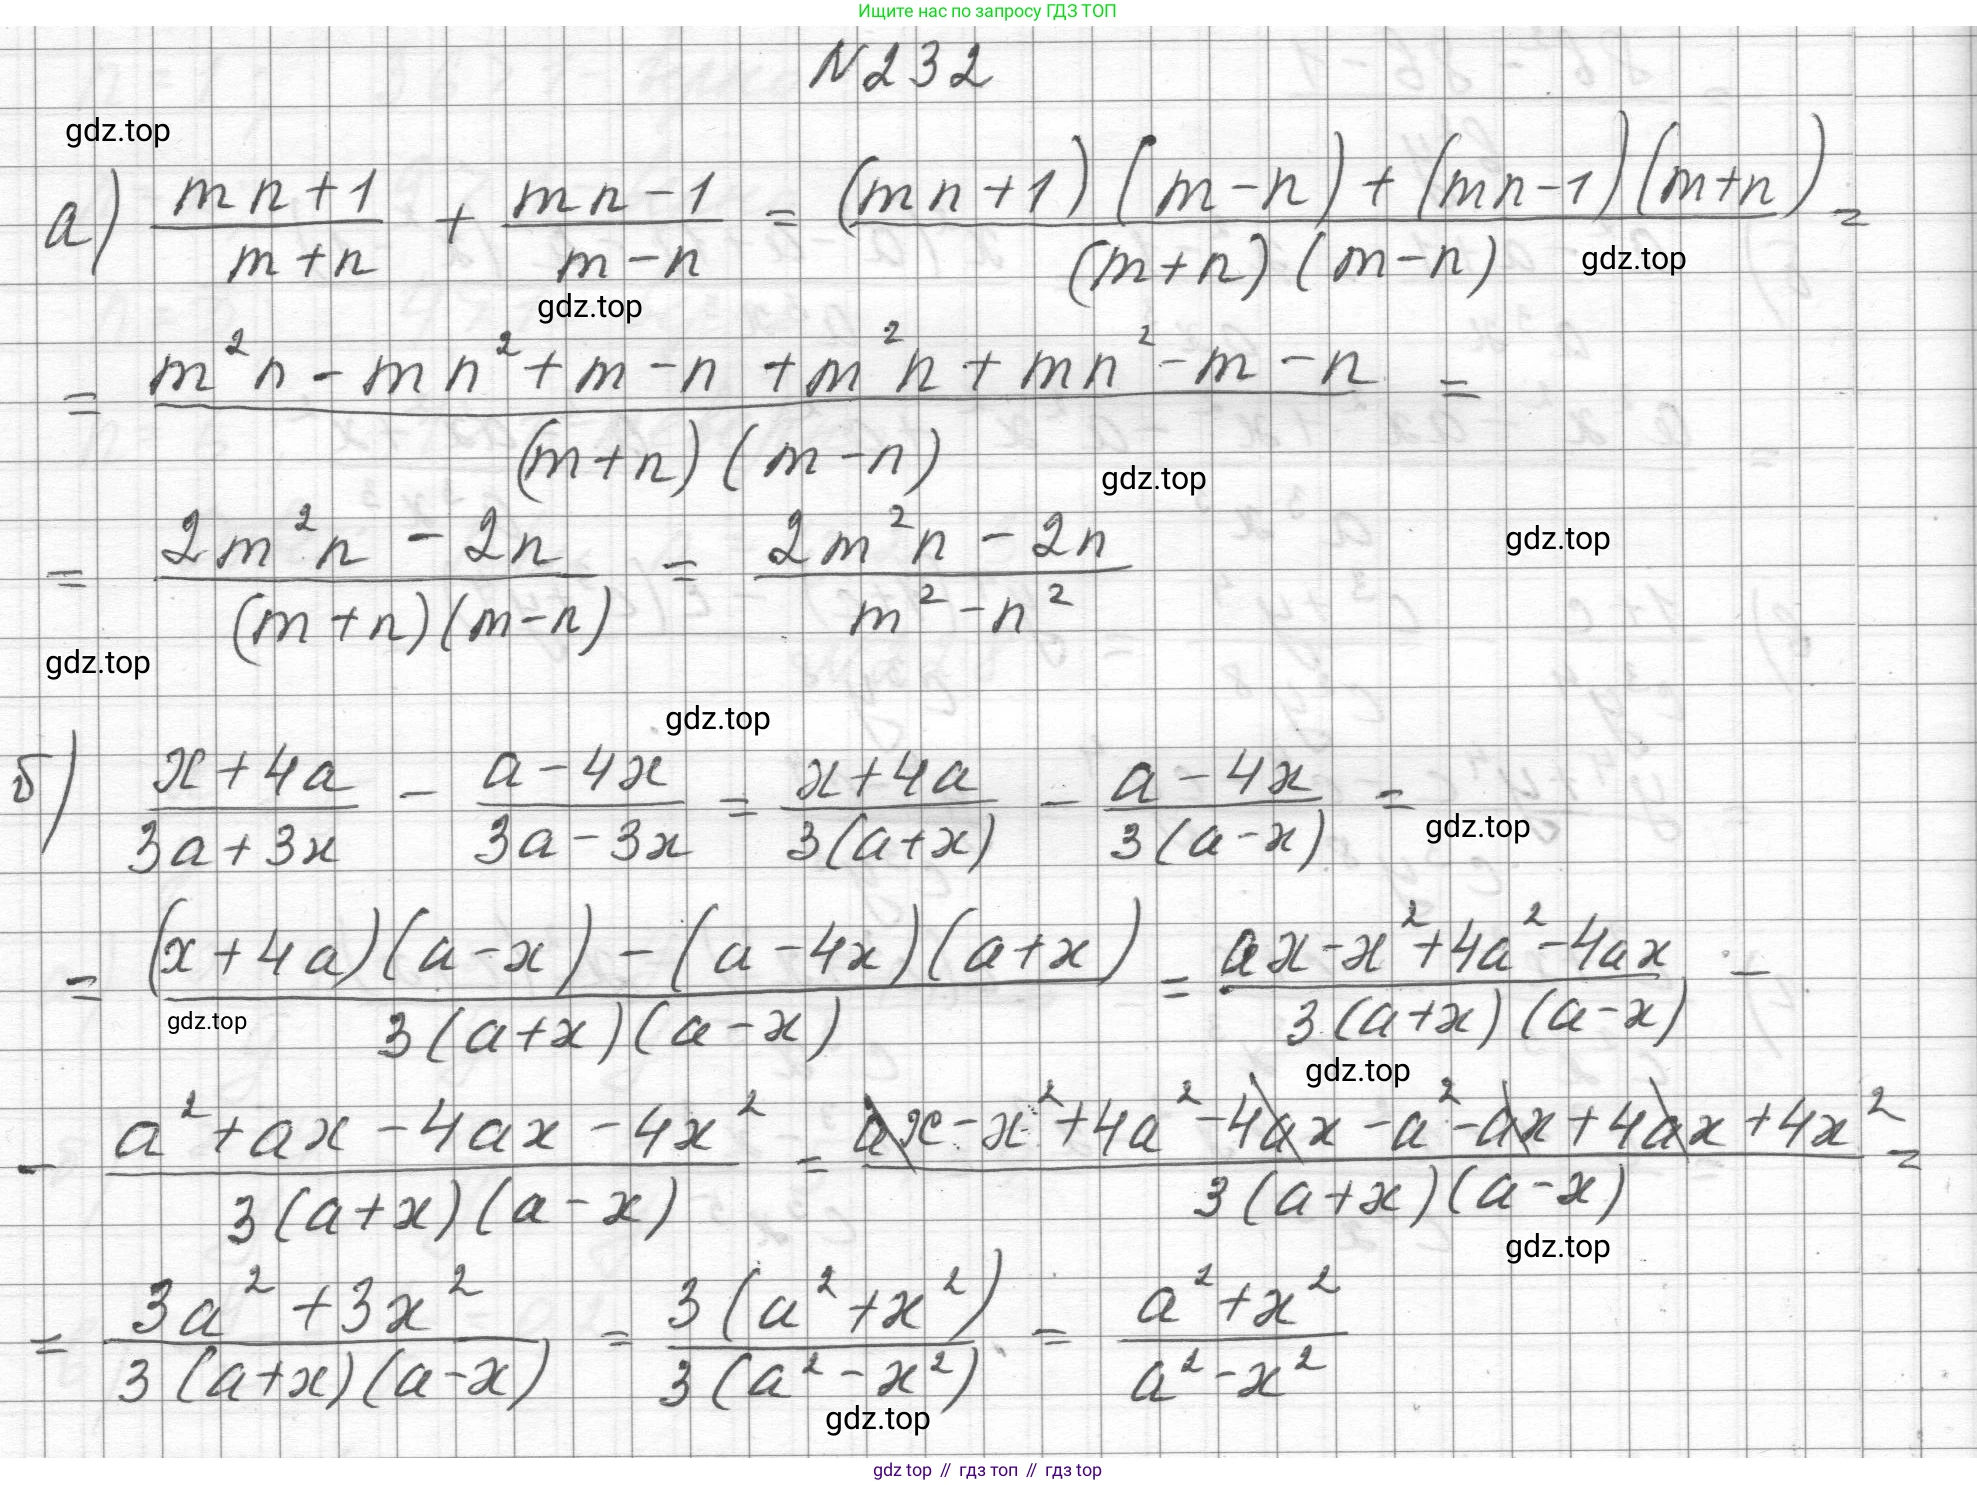 Ищите нас по запросу ГДЗ ТОП
N232
gdz.top
а) (mn+1)/(m+n) + (mn-1)/(m-n) = ((mn+1)(m-n)+(mn-1)(m+n))/((m+n)(m-n)) =
gdz.top
gdz.top
= (m²n-mn²+m-n+m²n+mn²-m-n)/((m+n)(m-n)) =
gdz.top
= (2m²n-2n)/((m+n)(m-n)) = (2m²n-2n)/(m²-n²)
gdz.top
gdz.top
gdz.top
б) (x+4a)/(3a+3x) - (a-4x)/(3a-3x) = (x+4a)/(3(a+x)) - (a-4x)/(3(a-x)) =
gdz.top
= ((x+4a)(a-x)-(a-4x)(a+x))/(3(a+x)(a-x)) = (ax-x²+4a²-4ax)/(3(a+x)(a-x)) -
gdz.top
gdz.top
- (a²+ax-4ax-4x²)/(3(a+x)(a-x)) = (ax-x²+4a²-4ax-a²-ax+4ax+4x²)/(3(a+x)(a-x)) =
gdz.top
= (3a²+3x²)/(3(a+x)(a-x)) = (3(a²+x²))/(3(a²-x²)) = (a²+x²)/(a²-x²)
gdz.top
gdz top // гдз топ // гдз top